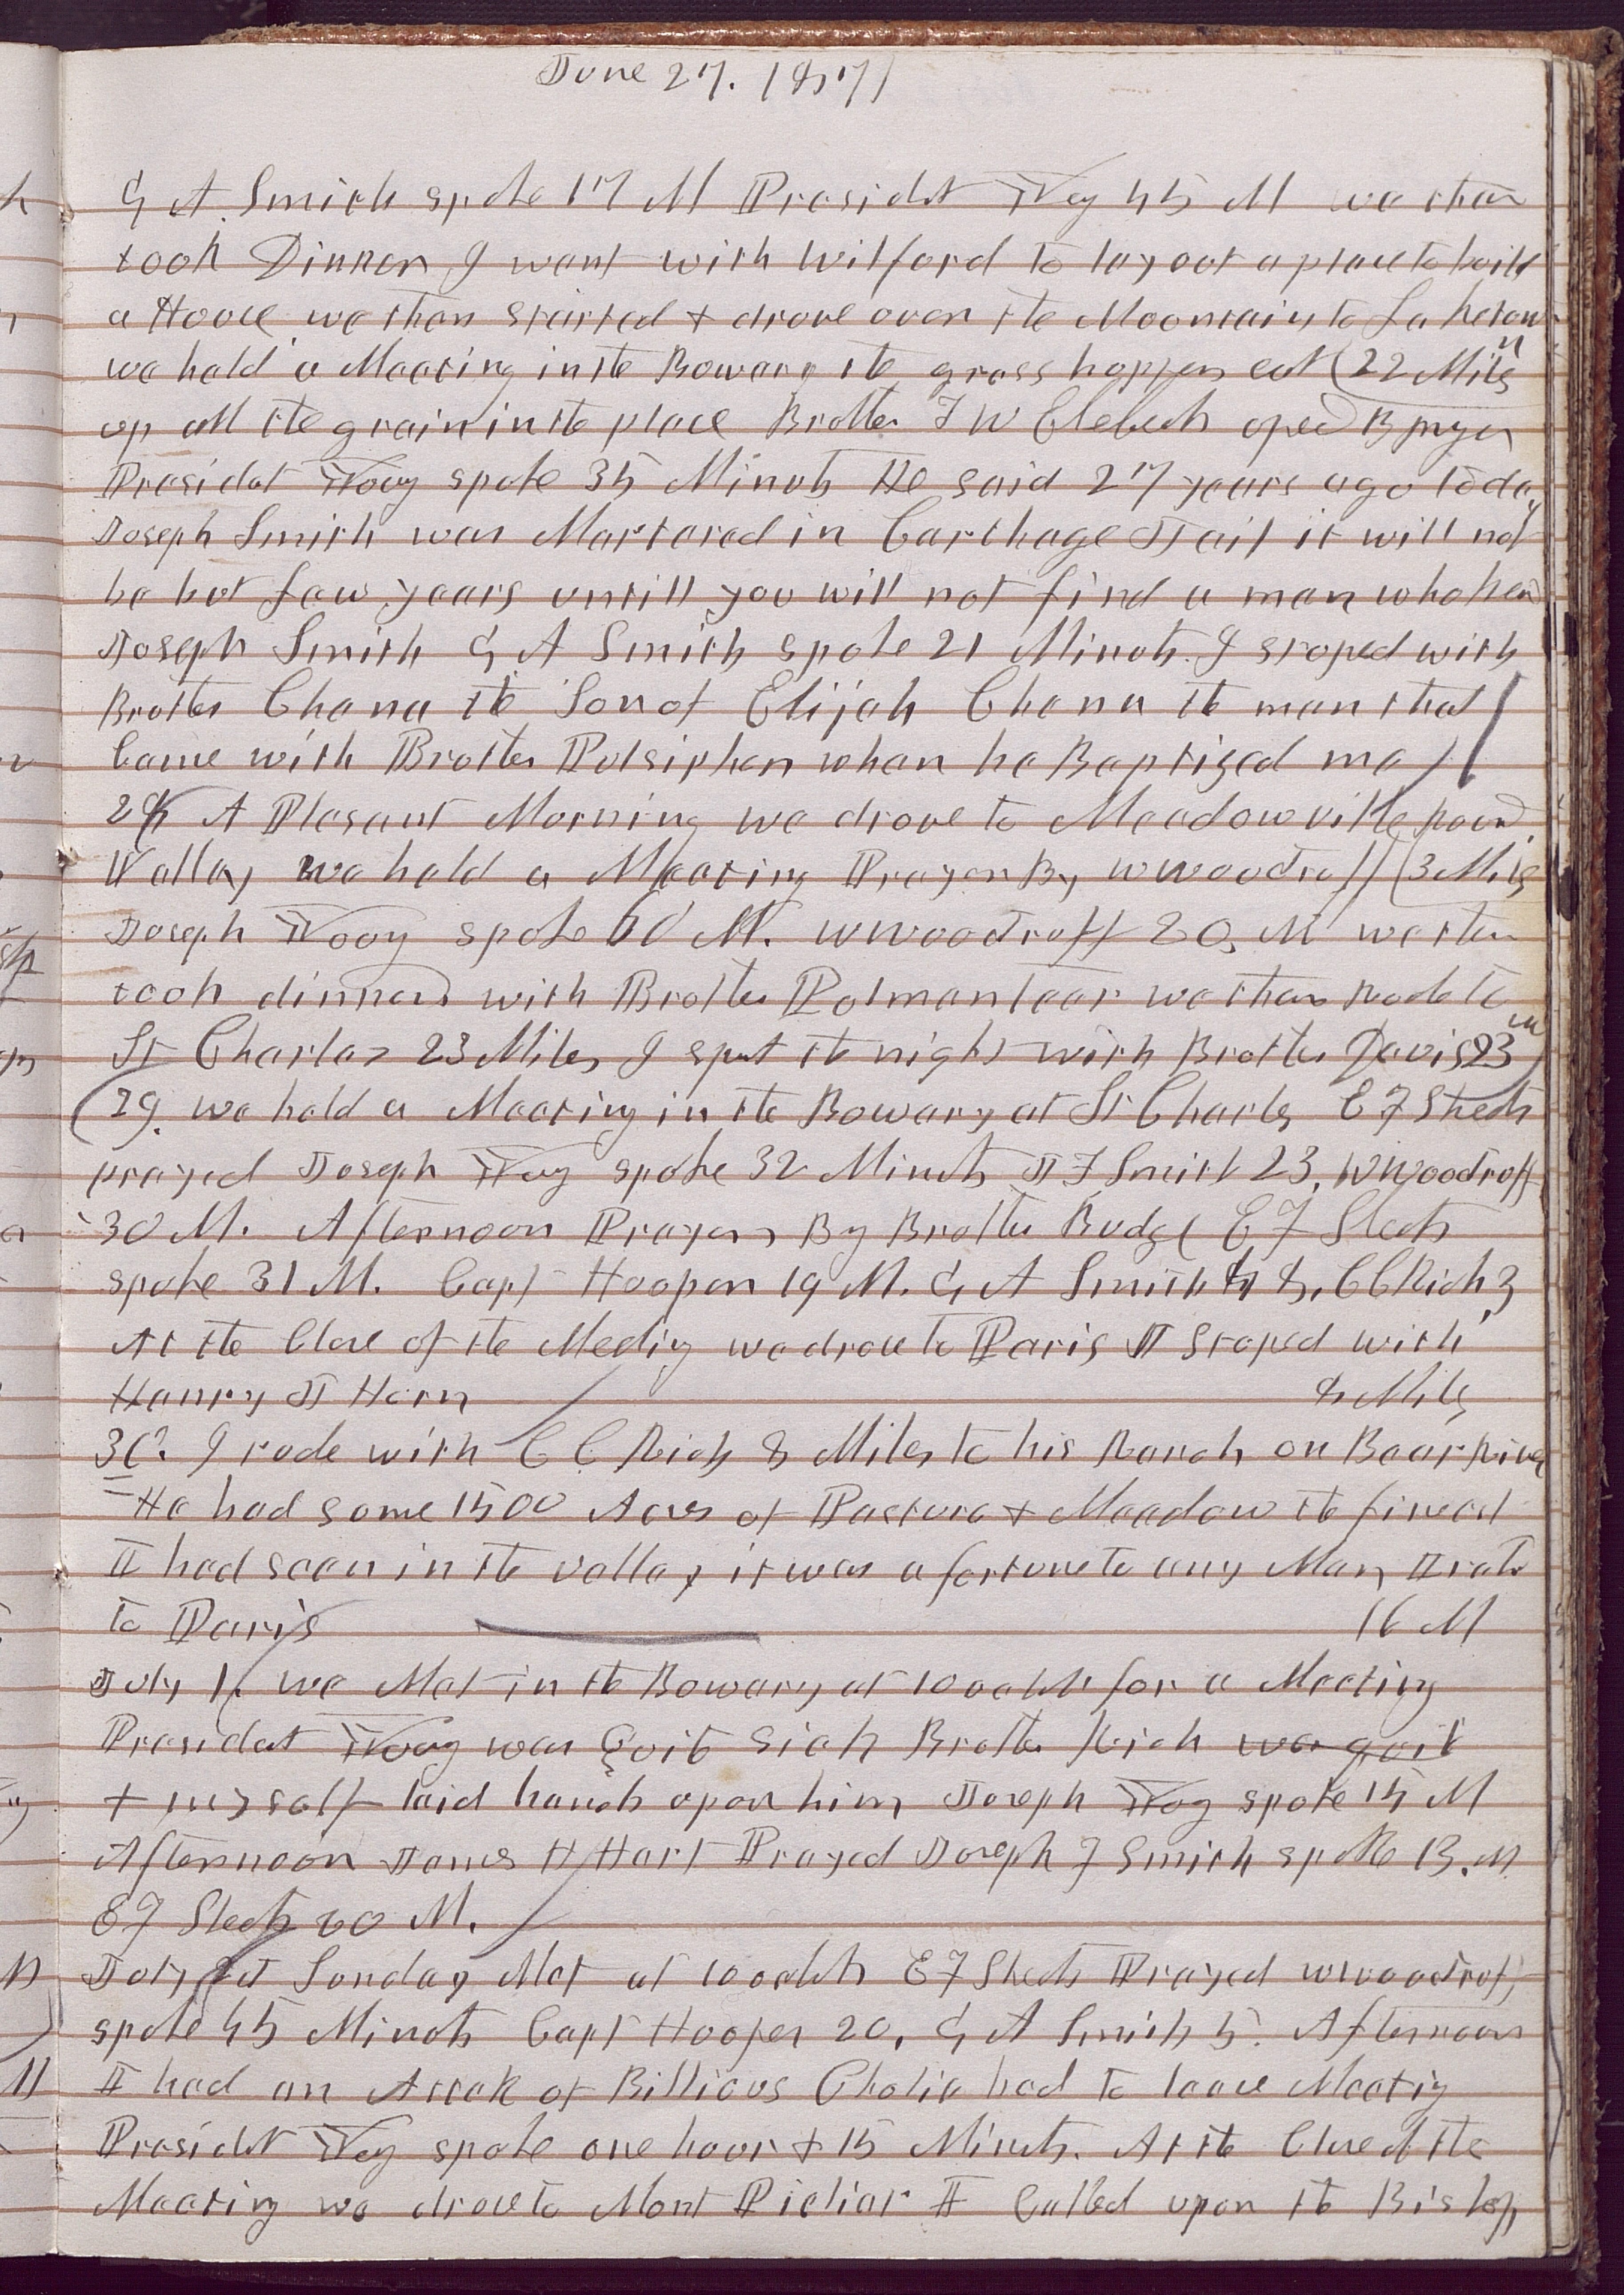 June 27. 1871
G A. Smith spoke 17 M President Young 45 M we then
took Dinner I went with Wilford to lay out a place to build
a House we then started & drove over the Mountain to Laketown
we held a Meeting in the Bowery the grass hoppers eat (22 Miles
up all the grain in the place Brother oped By prayer
Presidet Young spoke 35 Minuts He said 27 years ago to day
Joseph Smith was Martered in Carthage Jail it will not
be but few years untill you will not find a man who knew
Joseph Smith G A Smith spoke 21 Minuts. I stoped with
Brother Cheney the Son of Elijah Cheney the man that
Came with Brother Pulsipher when he Baptized me
28 A Plesant Morning we drove to Meadowville round
Valley we held a Meeting Prayer By W Woodruff (3 Miles
Joseph Young spoke M. W Woodruff 20, M we then
took dinner with Brother we then rode to
St Charles 23 Miles I spent the night with Brother Davis 23 m
29. we held a Meeting in the Bowery at St Charles E F Sheets
prayed Joseph Young spoke 32 Minuts J F Smith 23, W Woodruff
30 M. Afternoon Prayer By Brother Budge E F Sheets
spoke 31 M. Capt Hooper 19 M. G A Smith C C Rich 3
At the Close of the Meetig we drove to Paris I stoped with
Henry J Horn 8 Miles
30. I rode with C C Rich 8 Miles to his Ranch on Bear River
He had some 1500 Acres of Pasture & Meadow the finest
I had seen in the valley it was a fortune to any Man I rode
to Paris 16 M
July 1. we Met in the Bowery at 10 oclok for a Meeting
President Young was Quite Sick Brother Rich wa quit
& myself laid hands upon him Joseph Young spoke 15 M
Afternoon James H Hart Prayed Joseph F Smith spoke 13. M
E F Sheets 20 M.
July 2d Sunday Met at 10 oclok E F Sheets Prayed W Woodruff
spoke 45 Minuts Capt Hooper 20, G A Smith 5. Afternoon
I had an Attak of Billious Cholic had to leave Meetig
Presidet Young spoke one hour & 15 Minuts. At the Close of the
Meeting we drove to Mont Pielier I Called upon the Bishop